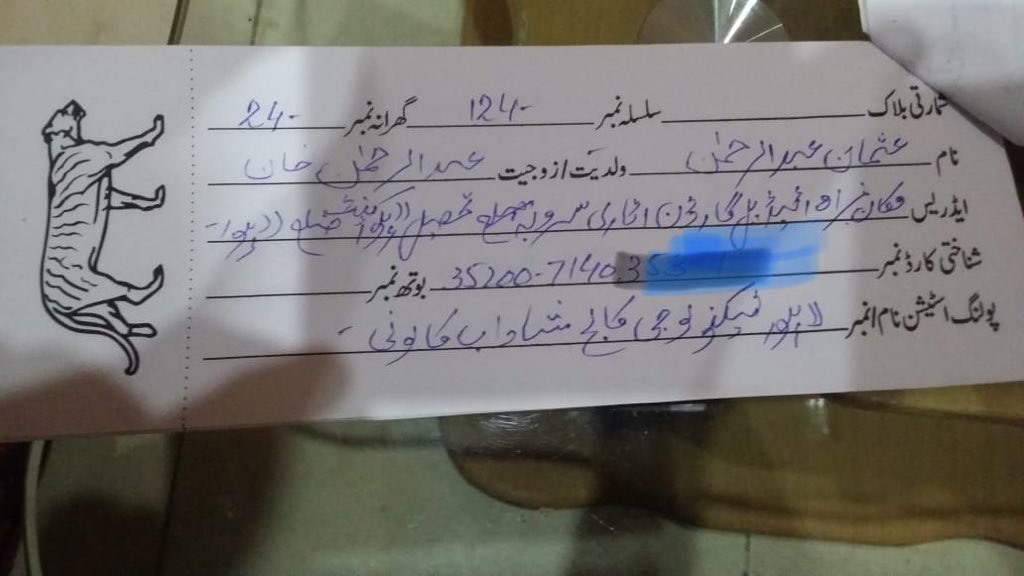 شمارتی بلاک ــــ سلسلہ نمبر 124- گھرانہ نمبر 24-
نام عثمان عبدالرحمٰن ولدیت / زوجیت عبدالرحمٰن خان
ایڈریس مکان نمبر گارڈن اٹاری سروبہ تحصیل لاہور کینٹ ضلع لاہور-
شناختی کارڈ نمبر 35200-7140 بوتھ نمبر
پولنگ اسٹیشن نام / نمبر لاہور ٹیکنولوجی کالج شاداب کالونی -